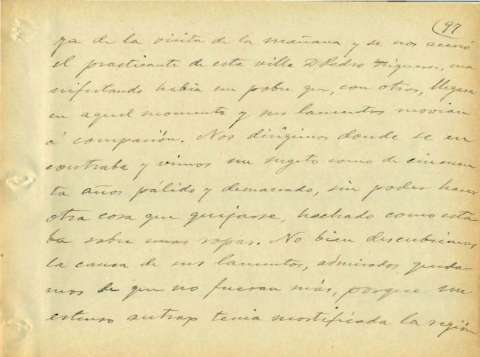 97
ya de la visita de la mañana y se nos acercó
el practicante de esta villa D Pedro Higueras, ma
nifestando había un pobre que, con otros, llegara
en aquel momento y sus lamentos movian
á compasión. Nos dirigimos donde se en
contraba y vimos un sugeto como de cincuen
ta años pálido y demacrado, sin poder hacer
otra cosa que quejarse, hechado como esta
ba sobre unas ropas. No bien descubrimos
la causa de sus lamentos, admirados queda
mos de que no fueran más, porque un
extenso antrax tenia mortificada la región